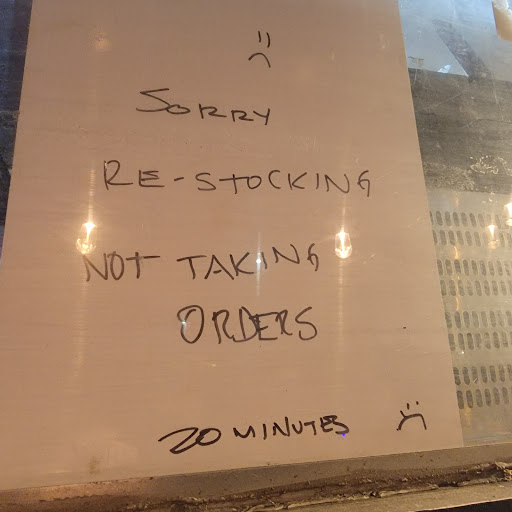 SORRY
RE-STOCKING
NOT TAKING
ORDERS
20 MINUTES